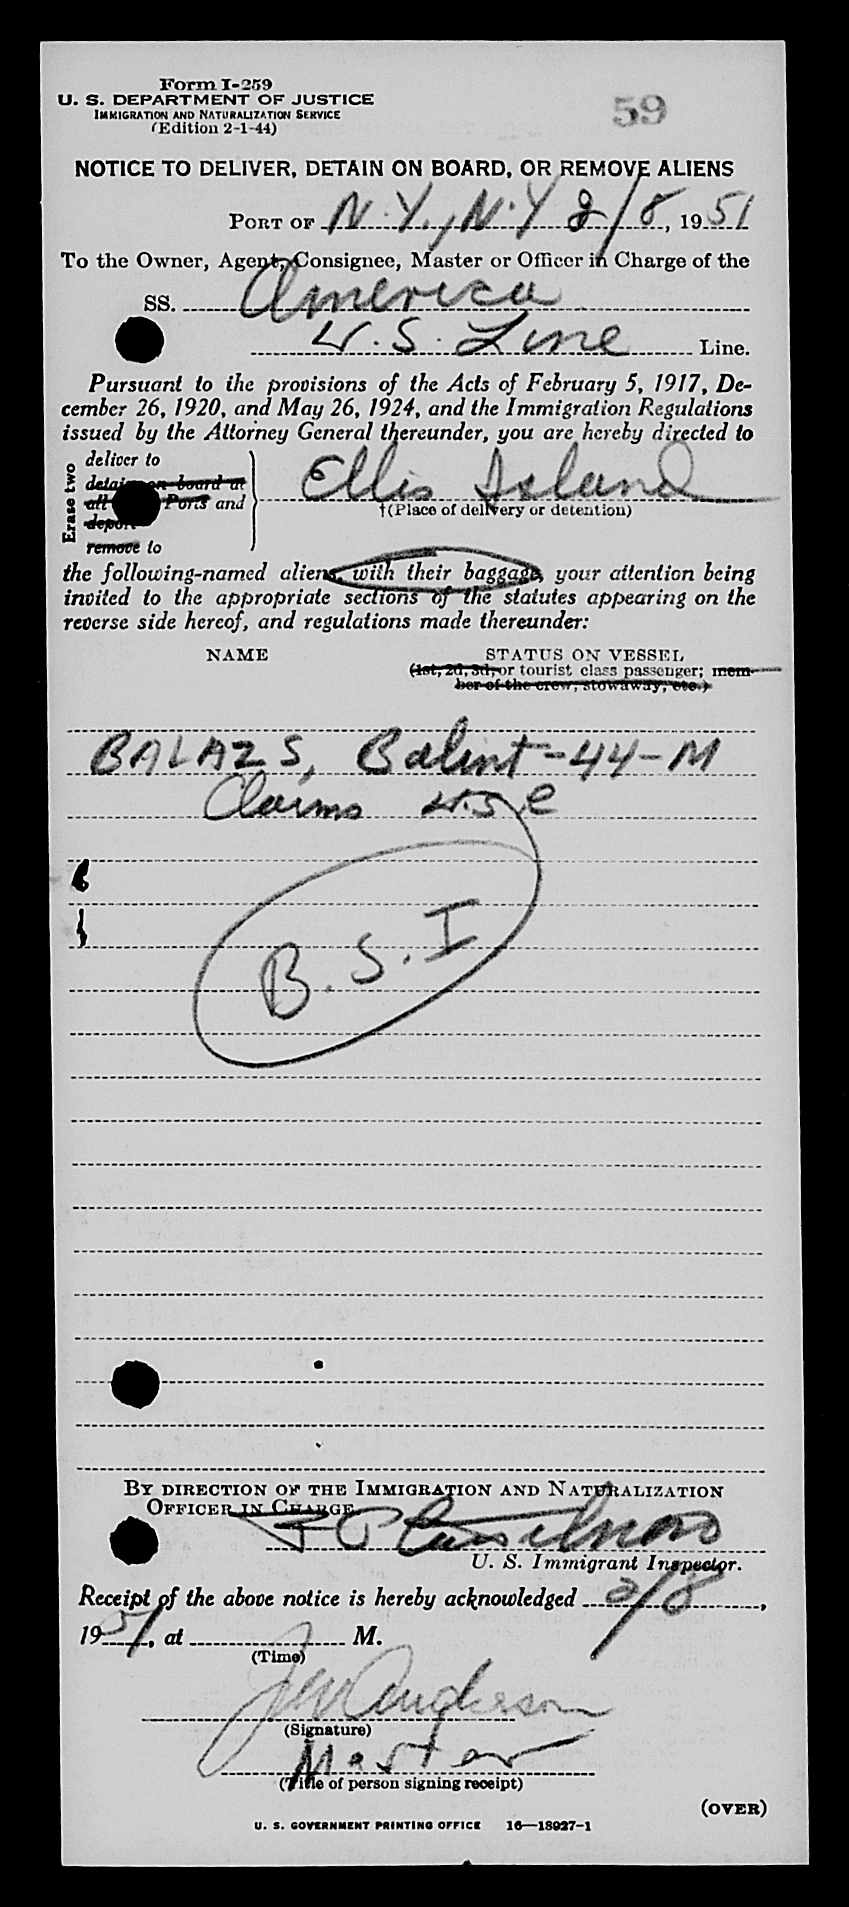 Form I-259
U. S. DEPARTMENT OF JUSTICE
IMMIGRATION AND NATURALIZATION SERVICE
(Edition 2-1-44)
59
NOTICE TO DELIVER, DETAIN ON BOARD, OR REMOVE ALIENS
PORT OF N.Y., N.Y 2/8, 1951
To the Owner, Agent, Consignee, Master or Officer in Charge of the
SS. America
U.S. Line Line.
Pursuant to the provisions of the Acts of February 5, 1917, De-
cember 26, 1920, and May 26, 1924, and the Immigration Regulations
issued by the Attorney General thereunder, you are hereby directed to
Erase two
deliver to
detain on board at
all Ports and
deport
remove to
Ellis Island
†(Place of delivery or detention)
the following-named aliens, with their baggage, your attention being
invited to the appropriate sections of the statutes appearing on the
reverse side hereof, and regulations made thereunder:
NAME STATUS ON VESSEL
(1st, 2d, 3d, or tourist class passenger; mem-
ber of the crew, stowaway, etc.)
BALAZS, Balint-44-M
Claims U.S.C
B.S.I
BY DIRECTION OF THE IMMIGRATION AND NATURALIZATION
OFFICER IN CHARGE
U. S. Immigrant Inspector.
Receipt of the above notice is hereby acknowledged 2/8,
1951, at M.
(Time)
Anderson
(Signature)
Master
(Title of person signing receipt)
(OVER)
U. S. GOVERNMENT PRINTING OFFICE 16—18927-1